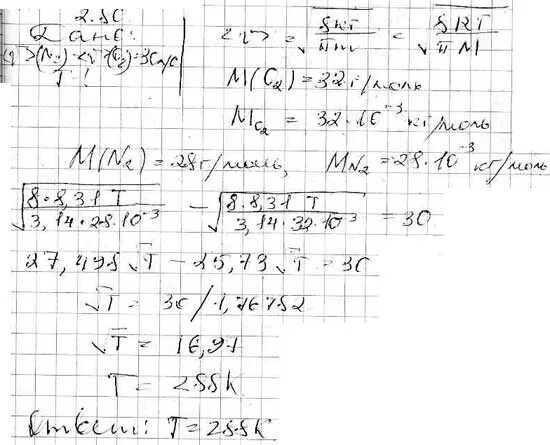 2.80
Дано:
<v>(N₂) - <v>(O₂) = 30 м/с
T?
<v> = √(8kT/πm) = √(8RT/πM)
M(O₂) = 32 г/моль
M O₂ = 32·10⁻³ кг/моль
M(N₂) = 28 г/моль, M N₂ = 28·10⁻³ кг/моль
√(8·8,31 T / 3,14·28·10⁻³) - √(8·8,31 T / 3,14·32·10⁻³) = 30
27,498√T - 25,73√T = 30
√T = 30/1,76752
√T = 16,97
T = 288 K
Ответ: T = 288 K